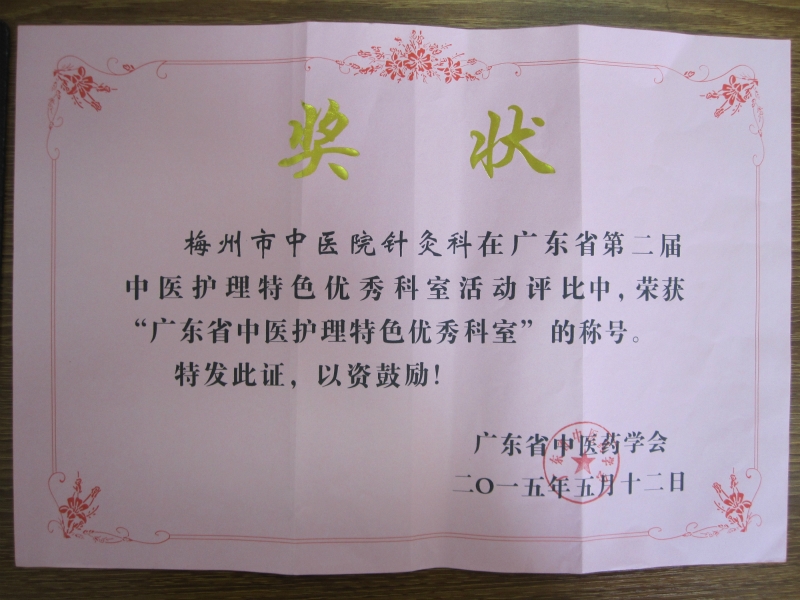 奖状
梅州市中医院针灸科在广东省第二届
中医护理特色优秀科室活动评比中,荣获
“广东省中医护理特色优秀科室”的称号。
特发此证,以资鼓励!
广东省中医药学会
二〇一五年五月十二日